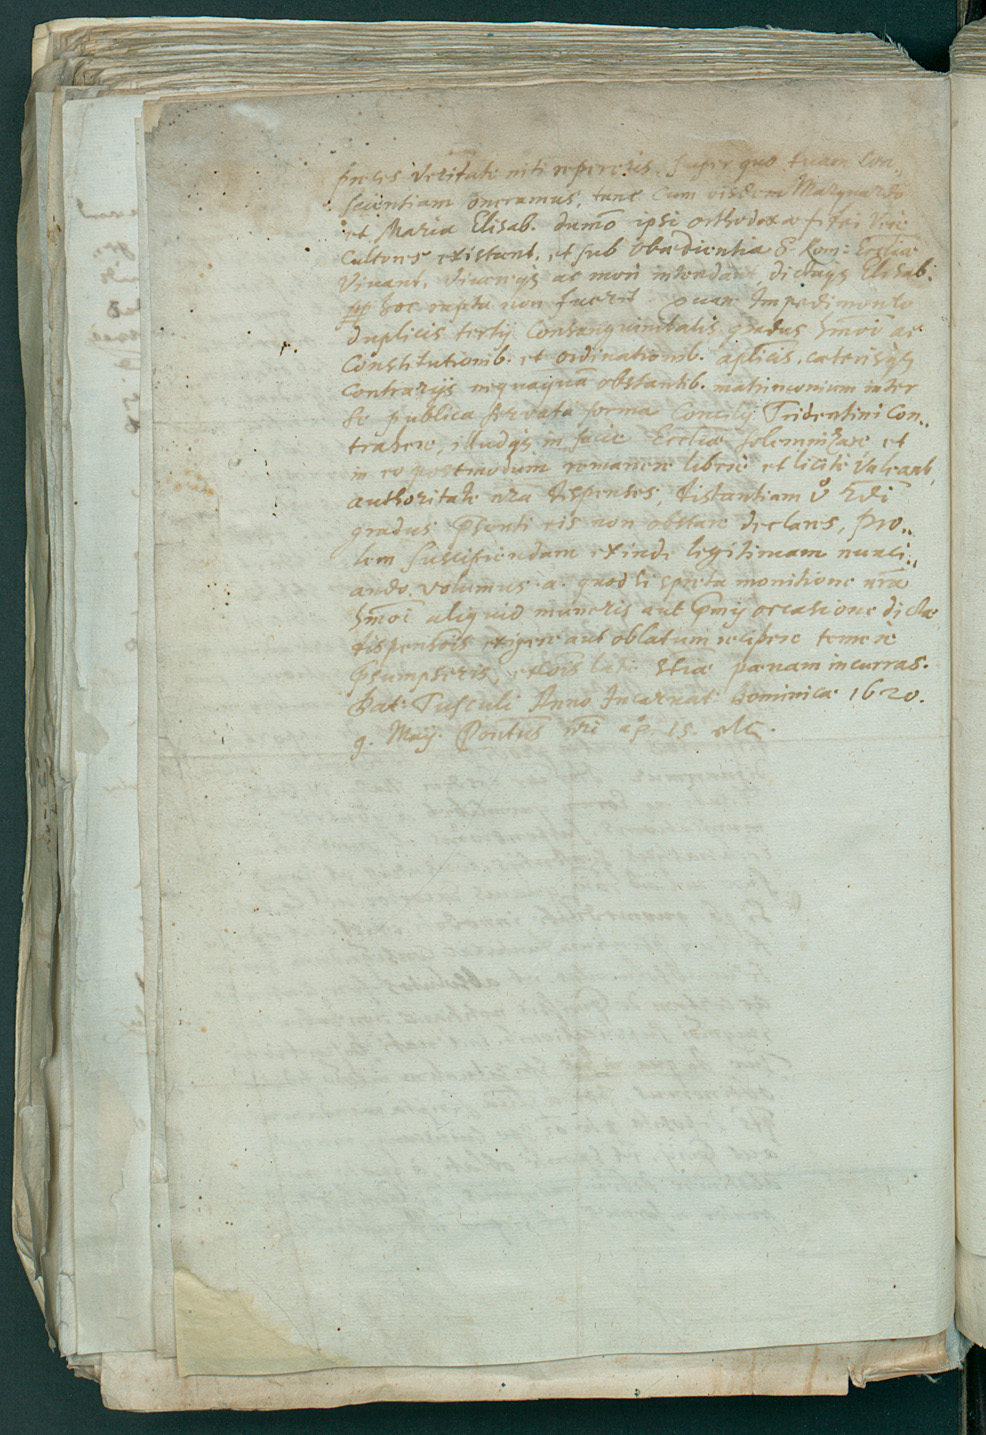 preces veritate niti repereris, super quo tuam Con„
scientiam oneramus, tunc cum eisdem Marquardo
et Maria Elisab. dum̄o ipsi orthodoxæ fidei veri
cultores existant, et sub obædientia S. Rom: Eccliæ
vivant, viverēqs ac mori intendant dictaqs Elisab:
ꝓp hoc rapta non fuerit. quare Impedimento
duplicis tertij Consanguinitatis gradus hmōi ac
Constitutionib. et ordinationib. aplicis, cæterisqs
contrarijs nequaquā obstantib. matrimonium inter
se publice servata forma Concilij Tridentini Con„
trahere, illudqs in facie Eccliæ solemnizare et
in eo postmodum remanere liberè et licitè valeant,
authoritate nrā dispenses, distantiam v̊ 2di
gradus pn̄ti eis non obstare declarans, pro„
lem suscipiendam exinde legitimam nunci„
ando. volumus .a. quod si spreta monitione nrā
hmōi aliquid muneris aut pm̄ij occasione dictæ
dispensōis exigere aut oblatum recipere temerè
pr̄sumpseris, excōis latæ stiæ pœnam incurras.
Dat: Tusculi Anno Incarnat: Dominicæ 1620.
9. Maij. Pontūs nrī aō. 15. etc.